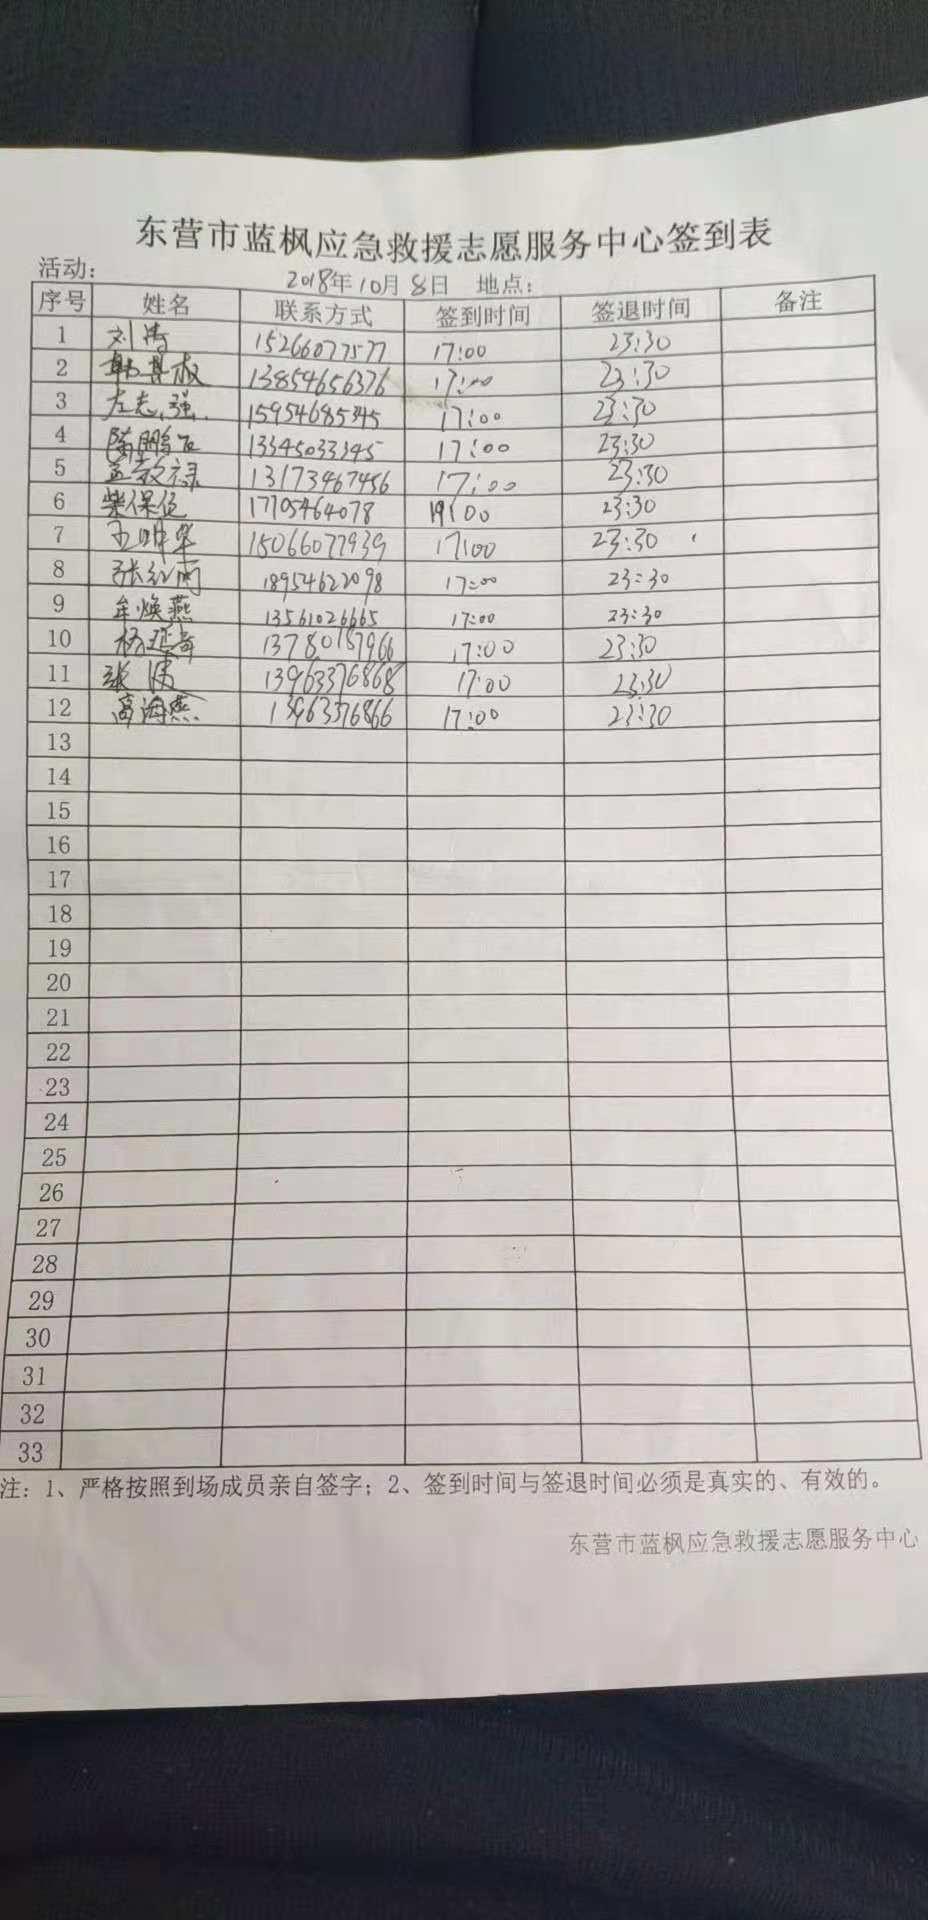 东营市蓝枫应急救援志愿服务中心签到表
活动： 2018年10月8日 地点：
序号 姓名 联系方式 签到时间 签退时间 备注
1 刘涛 15266077577 17:00 23:30
2 13854656376 17:00 23:30
3 左志强 15954685345 17:00 23:30
4 隋鹏飞 13345033345 17:00 23:30
5 孟教禄 13173467456 17:00 23:30
6 柴保位 17705464078 19:00 23:30
7 15066077939 17:00 23:30
8 张红雨 18954622098 17:00 23:30
9 牟焕燕 13561026665 17:00 23:30
10 杨延奇 13780187966 17:00 23:30
11 张波 13963376868 17:00 23:30
12 高海燕 13963376866 17:00 23:30
13
14
15
16
17
18
19
20
21
22
23
24
25
26
27
28
29
30
31
32
33
注：1、严格按照到场成员亲自签字；2、签到时间与签退时间必须是真实的、有效的。
东营市蓝枫应急救援志愿服务中心